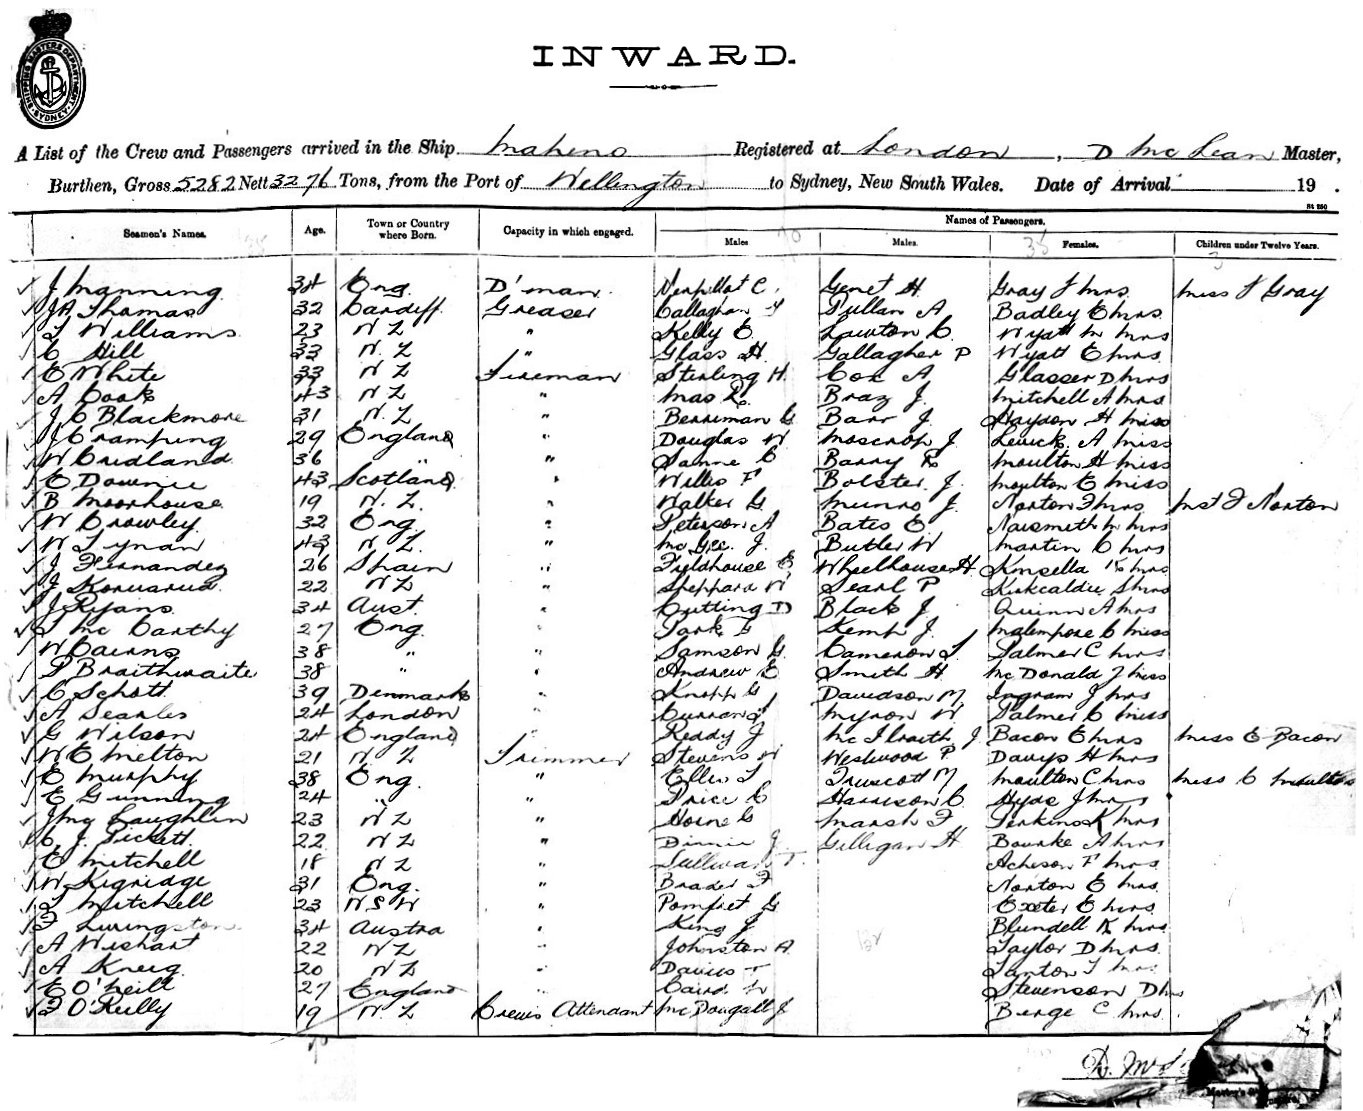 SHIPPING MASTERS DEPARTMENT SYDNEY
INWARD.
A List of the Crew and Passengers arrived in the Ship Maheno Registered at London, D McLean Master,
Burthen, Gross 5282 Nett 3276 Tons, from the Port of Wellington to Sydney, New South Wales. Date of Arrival 19 .
St 250
Seamen's Names. Age. Town or Country where Born. Capacity in which engaged. Names of Passengers.
Males Males. Females. Children under Twelve Years.
J Manning 34 Eng. D'man C. Genet H Gray J Mrs Miss J Gray
JA Thomas 32 Cardiff Greaser Callaghan T Pullan A Badley E Mrs
T Williams 23 N Z " Kelly E Lawton C. Wyatt M Mrs
C Hill 33 N. Z " Glass H. Gallagher P Wyatt E Mrs
E White 33 N Z Fireman Sterling H. Cox A Glasser D Mrs
A Cook 43 N Z " Mas R. Bray J. Mitchell A Mrs
J C Blackmore 31 N. Z " Berriman G Barr J. Haydon H Miss
J Cramping 29 England " Douglas W Moscrop J. Levick A Miss
W Cridland 36 " " Sanne C Barry R Moulton H Miss
E Downie 43 Scotland " Willis F Bolster J. Moulton E Miss
B Moorhouse 19 N. Z. " Walker G. Munro J Norton F Mrs Mst F Norton
W Crowley 32 Eng. " Peterson A Bates E Naismith M Mrs
W Tynan 43 N Z. " McGee J. Butler W Martin C Mrs
J Fernandez 26 Spain " Fieldhouse E Wheelhouse H Kinsella Mrs
J 22 N Z " Sheppard W Searl P Kirkcaldie S Mrs
J Ryans 34 Aust. " Cutting D Black J Quinn A Mrs
T McCarthy 27 Eng. " Park F Kemp J. C Miss
W Cairns 38 " " Samson G. Cameron T. Palmer C Mrs
P Braithwaite 38 " " Andrew E Smith H McDonald J Miss
C Schott 39 Denmark " Knapp G Davidson M Ingram J Mrs
A Searles 24 London " Curran J Myron W Palmer C Miss
G Wilson 24 England " Reddy J McIlraith J Bacon E Mrs Miss E Bacon
W E Melton 21 N Z Trimmer Stevens W Westwood P Davys H Mrs
E Murphy 38 Eng. " Ellis T Truscott M Moulton C Mrs Miss C Moulton
E Gunning 24 " " Price C Harrison C. Hyde J Mrs
J McLaughlin 23 N Z " Horne G Marsh F Perkins K Mrs
C. J. Pickett 22 N Z " Dinnie J. Gilligan H Bourke A Mrs
E Mitchell 18 N Z " Sullivan T. Acheson F Mrs
W Kigridge 31 Eng. " Brader F Norton E Mrs
T Mitchell 23 N S W " Pomfret G Exeter E Mrs
F Livingston 34 Austra " King J Blundell K Mrs
A Wishart 22 N Z " Johnston A Taylor D Mrs
A 20 N Z " Davies Mrs
E O'Neill 27 England " Caird Stevenson D
F O'Reilly 19 N. Z Crews Attendant McDougall J Berge C Mrs
D. Mc